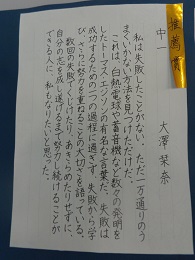 推薦賞
中一　大澤　栞奈
　私は失敗したことがない。ただ一万通りのう
まくいかない方法を見つけただけだ。
　これは、白熱電球や蓄音機など数々の発明を
したトーマス・エジソンの有名な言葉だ。失敗は
成功するための一つの過程に過ぎず、失敗から学
び、さらに努力を重ねることの大切さを語っている。
　数回の失敗でくじけたり、あきらめたりせずに、
自分の志を成し遂げるまで努力し続けることが
できる人に、私もなりたいと思った。